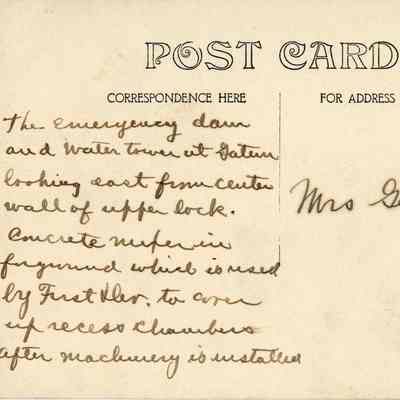 POST CARD
CORRESPONDENCE HERE
FOR ADDRESS
The emergency dam
and Water tower at Gatun
looking east from center
wall of upper lock.
Concrete mixer in
forground which is used
by First Div. to cover
up recess chambers
after machinery is installed
Mrs G